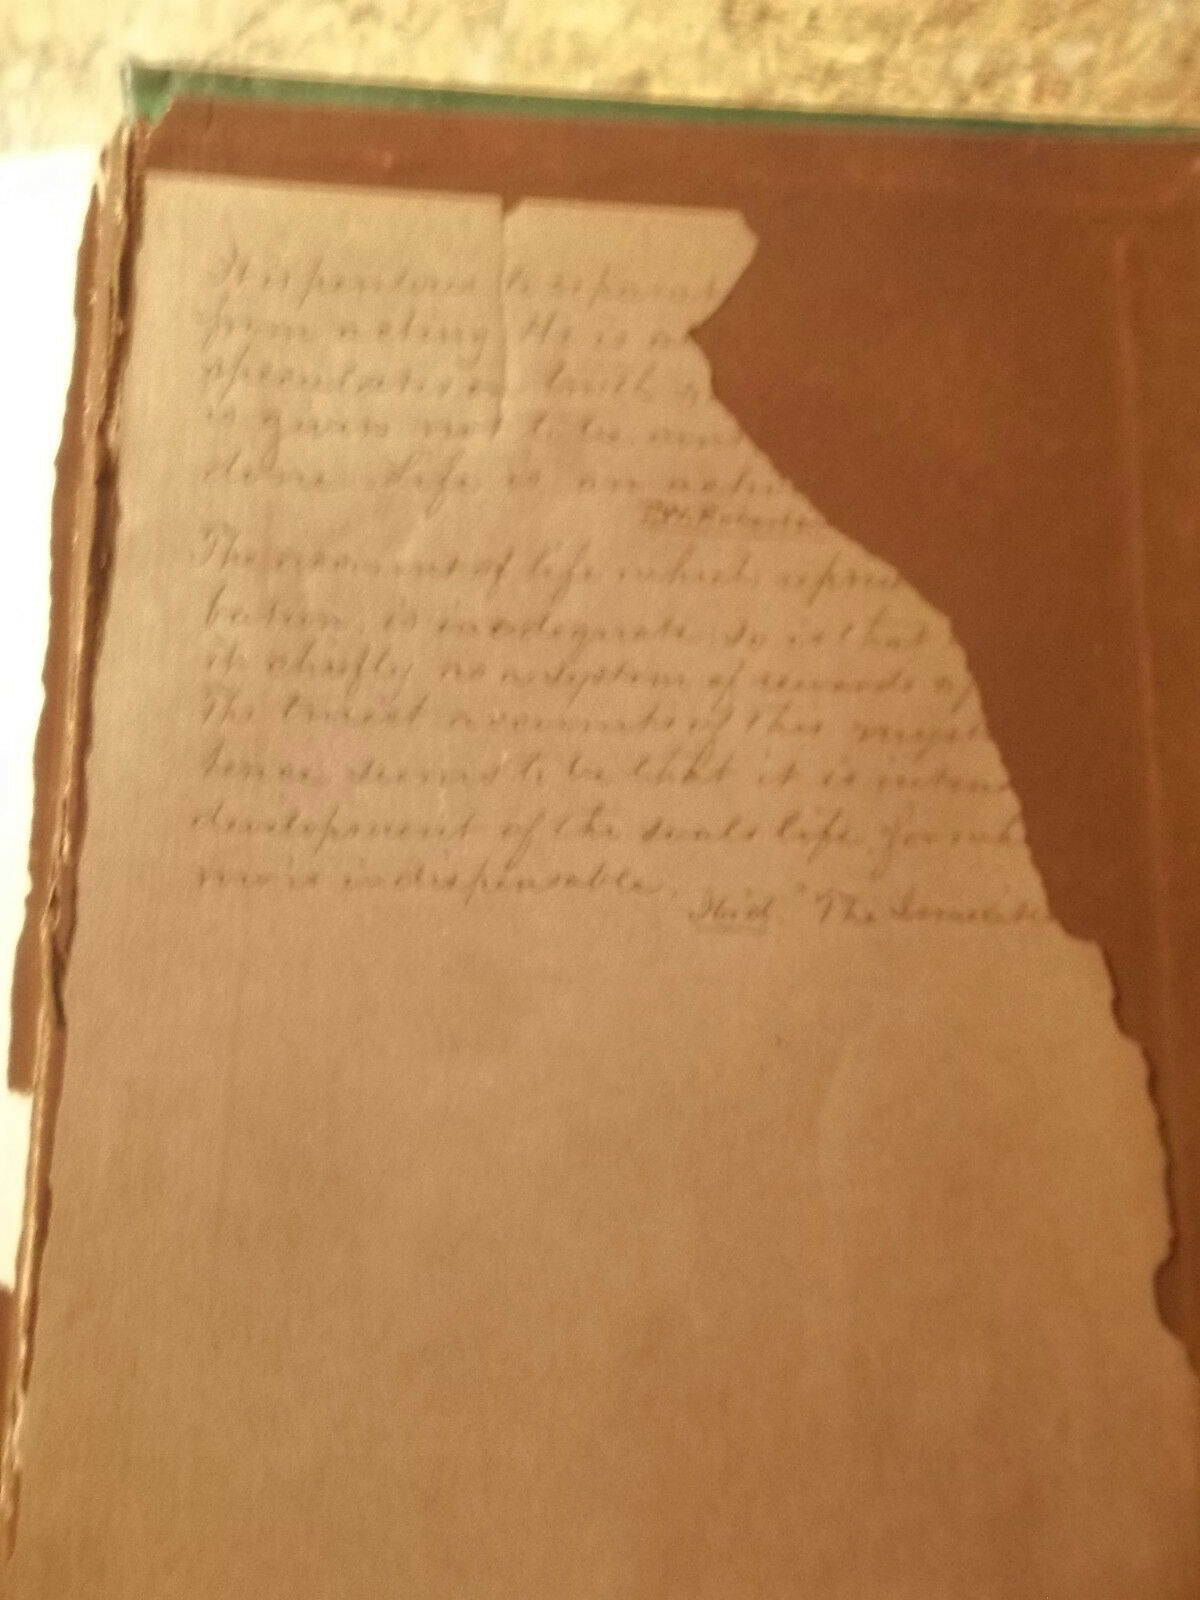 It is perilous to separat
from acting He is a
speculative truth
is given not to be
done Life is an acti
F.W. Roberts
The account of life which repres
bation, is inadequate so is that
it chiefly as a system of rewards
The truest account of this myst
tence seems to be that it is inten
development of the souls life for wh
is indispensable.
Ibid. "The Israelite